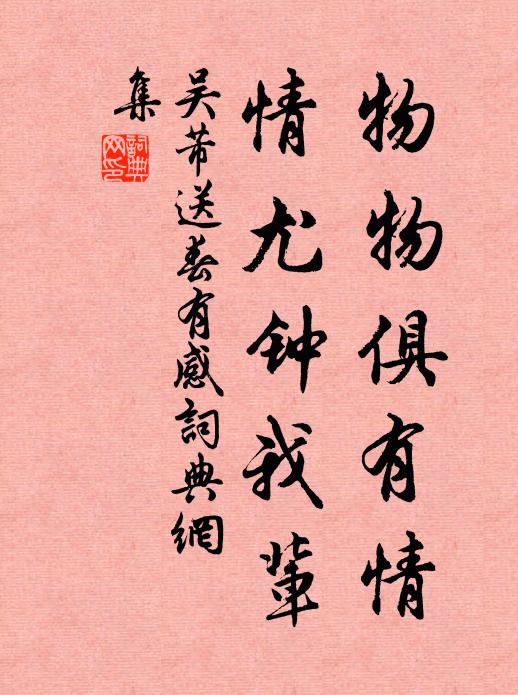 物物俱有情
情尤钟我辈
吴芾送春有感詞典網
集
詞典网印